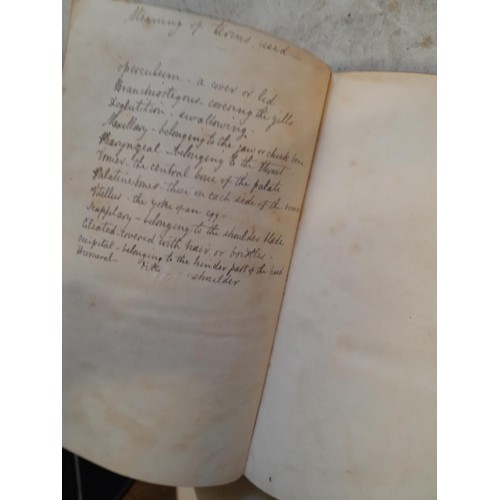 Meaning of terms used
operculum - a cover or lid
Branchiostegous - covering the gills
Deglutition - swallowing -
Maxillary - belonging to the jaw or cheek bone
Pharyngeal - belonging to the throat
Vomer - the central bone of the palate
Palatine bones - those on each side of the vomer
Vitellus - the yoke of an egg -
Scappelary - belonging to the shoulder blade
Cileated - covered with hair or bristles -
occipital - belonging to the hinder part of the head
Humeral - shoulder